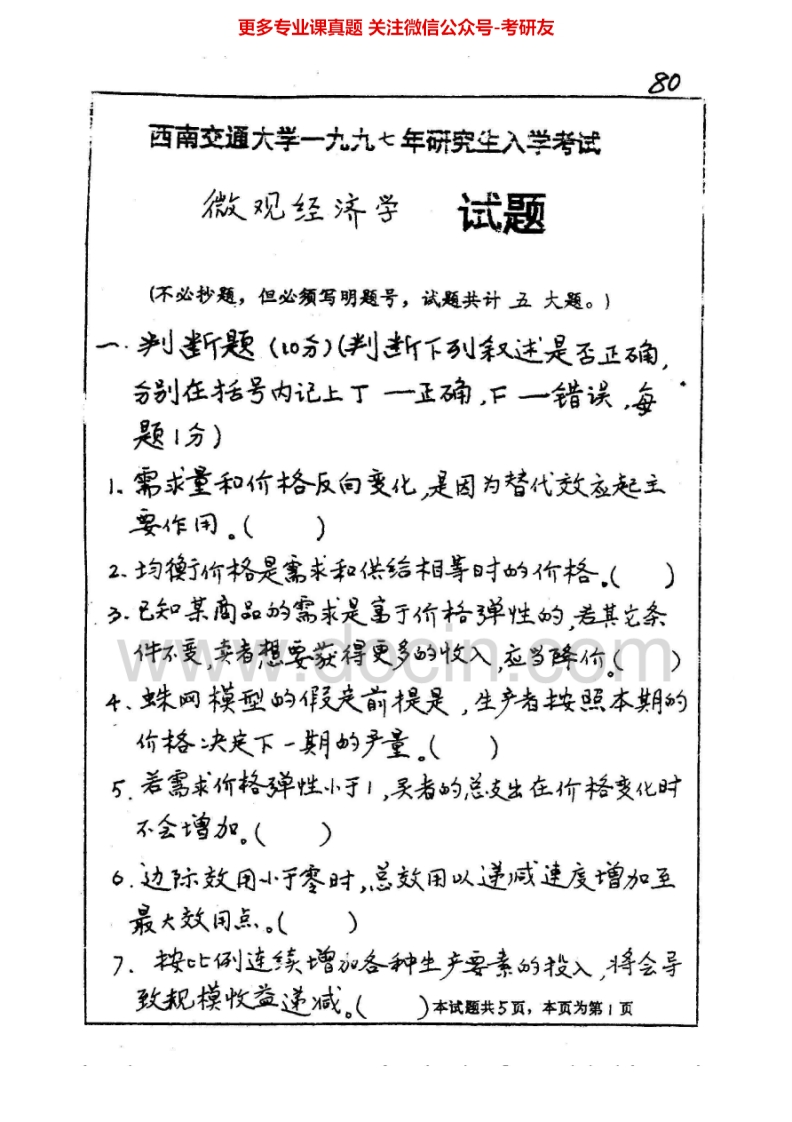 更多专业课真题 关注微信公众号-考研友
80
西南交通大学一九九七年研究生入学考试
微观经济学 试题
(不必抄题，但必须写明题号，试题共计 五 大题。)
一. 判断题 (10分)(判断下列叙述是否正确,
分别在括号内记上 T —正确, F —错误, 每
题1分)
1. 需求量和价格反向变化,是因为替代效应起主
要作用。( )
2. 均衡价格是需求和供给相等时的价格.( )
3. 已知某商品的需求是富于价格弹性的,若其它条
件不变,卖者想要获得更多的收入,应当降价.( )
www.docin.com
4. 蛛网模型的假定前提是, 生产者按照本期的
价格决定下一期的产量。( )
5. 若需求价格弹性小于1,买者的总支出在价格变化时
不会增加。( )
6. 边际效用小于零时,总效用以递减速度增加至
最大效用点。( )
7. 按比例连续增加各种生产要素的投入,将会导
致规模收益递减。( ) 本试题共5页，本页为第1页